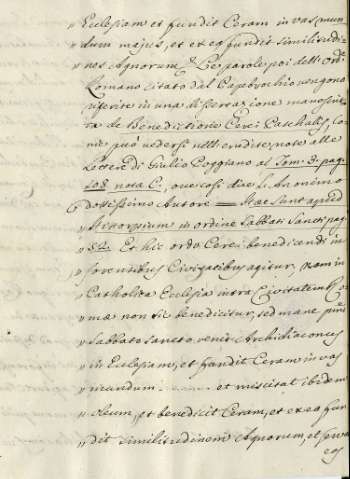 " Ecclesiam et fundit Ceram in vas mun
" dum majus, et ex ea fundit similitudi
" nes Agnorum Le parole poi dell' Ord.
Romano citato dal Papebrochio vengono
riferite in una dissertazione manoscri
ta de Benedictione Cerei Paschalis, co
me può vedersi nelle erudite note alle
Lettere di Giulio Poggiano al Tom. 3. pag.
108 nota C, ove così dice l'Anonimo
dottissimo Autore = Haec sunt apud
" Hittorpium in ordine Sabbati Sancti pag.
" 82. Et hic ordo Cerei benedicendi in
" forentibus Civitatibus agitur, nam in
" Catholica Ecclesia intra Civitatem Ro
" mae non sic benedicitur, sed mane primo
" Sabbato Sancto venit Archidiaconus
" in Ecclesiam, et fundit Ceram in vas
" mundum ........ et miscitat ibidem
" oleum, et benedicit Ceram, et ex ea fun
" dit similitudinem Agnorum, et serva
eos